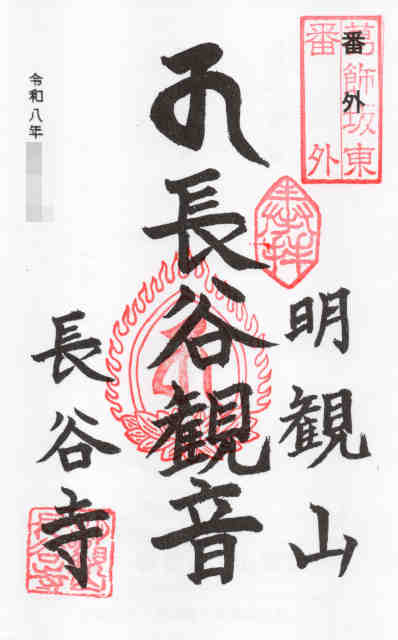 葛飾坂東
番外
番外
奉拝
明観山
長谷観音
長谷寺
令和八年